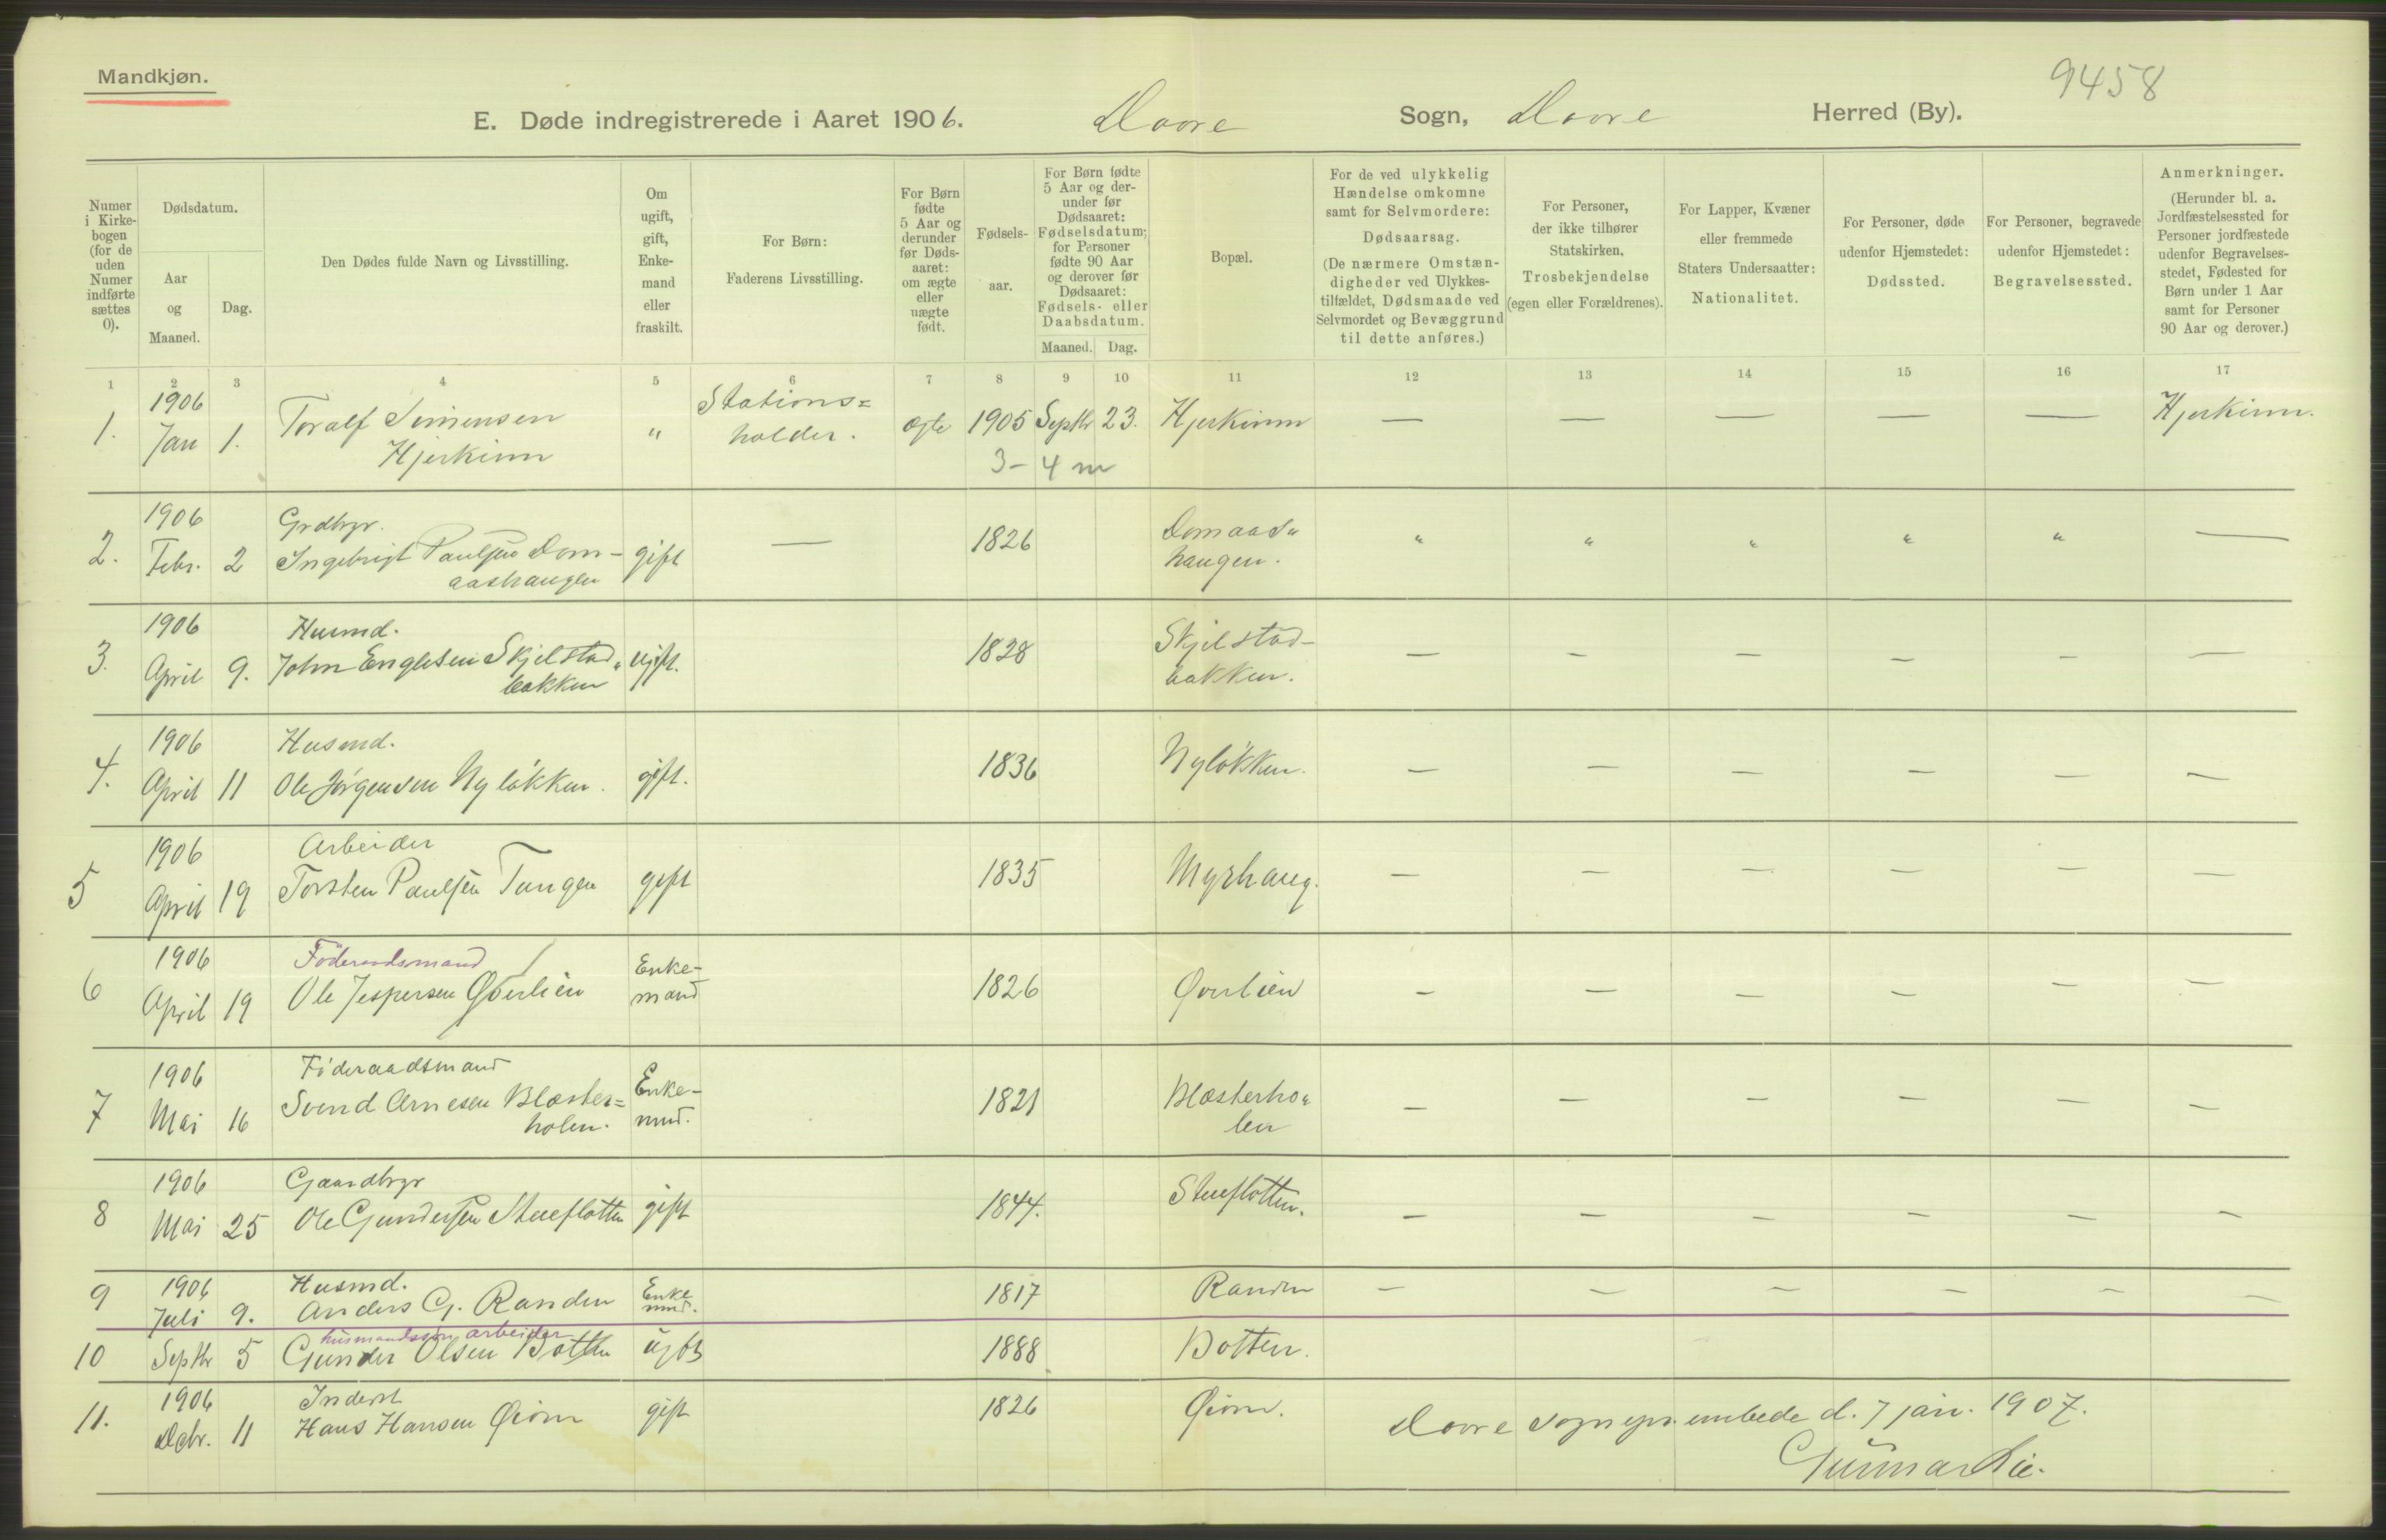 Mandkjøn.
9458
E. Døde indregistrerede i Aaret 1906. Dovre Sogn, Dovre Herred (By).
Numer i Kirkebogen (for de uden Numer indførte sættes 0).
Dødsdatum.
Aar og Maaned.
Dag.
Den Dødes fulde Navn og Livsstilling.
Om ugift, gift, Enkemand eller fraskilt.
For Børn: Faderens Livsstilling.
For Børn fødte 5 Aar og derunder før Dødsaaret: om ægte eller uægte født.
Fødselsaar.
For Børn fødte 5 Aar og derunder før Dødsaaret: Fødselsdatum; for Personer fødte 90 Aar og derover før Dødsaaret: Fødsels- eller Daabsdatum.
Maaned. Dag.
Bopæl.
For de ved ulykkelig Hændelse omkomne samt for Selvmordere: Dødsaarsag. (De nærmere Omstændigheder ved Ulykkestilfældet, Dødsmaade ved Selvmordet og Bevæggrund til dette anføres.)
For Personer, der ikke tilhører Statskirken, Trosbekjendelse (egen eller Forældrenes).
For Lapper, Kvæner eller fremmede Staters Undersaatter: Nationalitet.
For Personer, døde udenfor Hjemstedet: Dødssted.
For Personer, begravede udenfor Hjemstedet: Begravelsessted.
Anmerkninger. (Herunder bl. a. Jordfæstelsessted for Personer jordfæstede udenfor Begravelsesstedet, Fødested for Børn under 1 Aar samt for Personer 90 Aar og derover.)
1 2 3 4 5 6 7 8 9 10 11 12 13 14 15 16 17
1. 1906 Jan 1. Toralf Simensen Hjerkinn " Stations=holder. ægte 1905 Septbr 23. Hjerkinn — — — — — Hjerkinn.
3-4 m
2. 1906 Febr. 2 Grdbgr. Ingebrigt Paulsen Dom-aashaugen gift — 1826 Domaas"haugen. " " " " " —
3. 1906 April 9. Husmd. John Engletsen Skjelstad"bakken ugift. 1828 Skjelstad-bakken. — — — — — —
4. 1906 April 11 Husmd. Ole Jörgensen Nyløkken. gift. 1836 Nyløkken. — — — — — —
5 1906 April 19 Arbeider Torsten Paulsen Tungen gift 1835 Myrhaug. — — — — — —
6 1906 April 19 Föderaadsmand Ole Jespersen Øverlien Enke-mand 1826 Øverlien — — — — — —
7 1906 Mai 16 Föderaadsmand Svend Arnesen Blæster=holen. Enke-md. 1821 Blæsterho"len — — — — — —
8 1906 Mai 25 Gaardbgr Ole Gundersen Stueflotten gift 1844. Stueflotten. — — — — — —
9 1906 Juli 9. Husmd. Anders G. Randen Enke md. 1817 Randen — — — — — —
10 Septbr 5 husmandssøn, arbeider Gunder Olsen Botten ugift 1888 Botten.
11. 1906 Dcbr. 11 Inderst Hans Hansen Øiom gift 1826 Øiom.
Dovre sognepr.embede d. 7 jan. 1907.
Gunnar Lie.